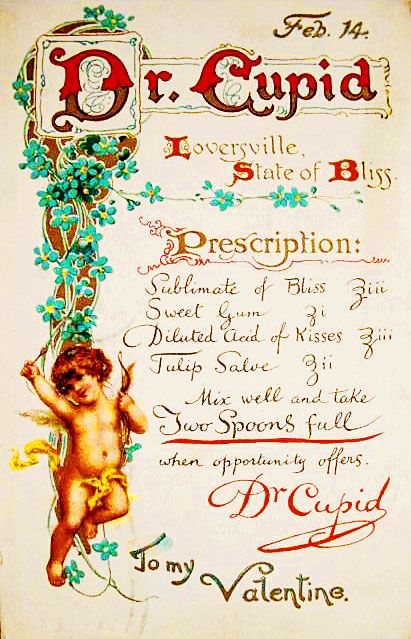 Feb. 14.
Dr. Cupid
Loversville,
State of Bliss.
Prescription:
Sublimate of Bliss ʒiii
Sweet Gum ʒi
Diluted Acid of Kisses ʒiii
Tulip Salve ʒii
Mix well and take
Two Spoons full
when opportunity offers.
Dr Cupid
To my Valentine.